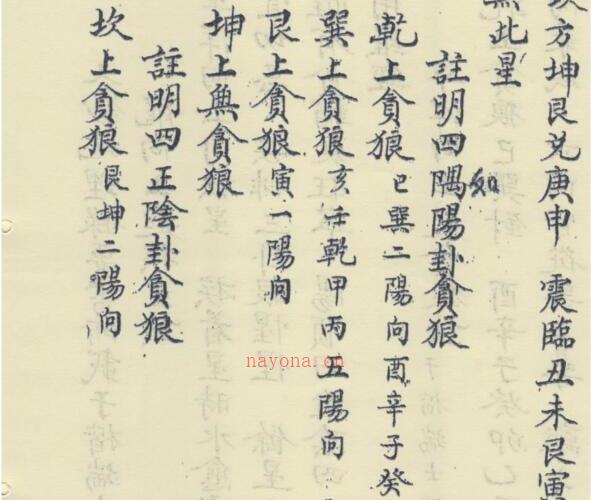 方坤艮兑庚申 震臨丑未艮寅
此星
註明四隅陽卦貪狼
如
乾上貪狼 巳巽二陽向酉辛子癸
巽上貪狼亥壬乾甲丙丑陽向
艮上貪狼寅一陽向
坤上無貪狼
註明四正陰卦貪狼
坎上貪狼艮坤二陽向
nayona.cn